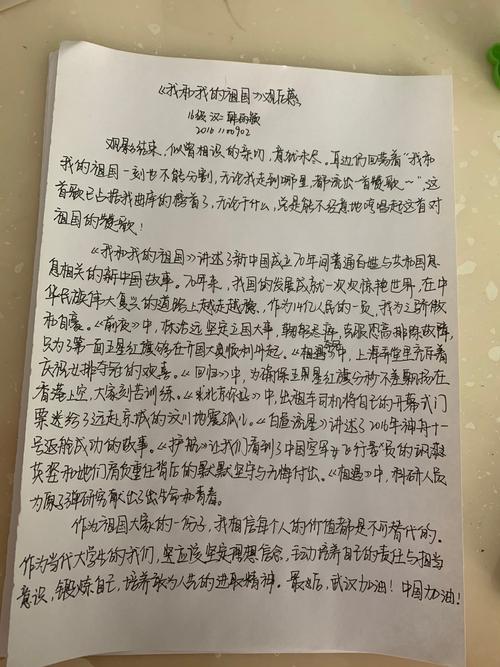 《我和我的祖国》观后感
16级 汉二
20161100902
观影结束，似曾相识的亲切，意犹未尽。耳边仍回荡着“我和
我的祖国一刻也不能分割，无论我走到哪里，都流出一首赞歌~”，这
首歌已占据我曲库的榜首了，无论干什么，总是能不经意地哼唱起这首对
祖国的赞歌！
《我和我的祖国》讲述了新中国成立70年间普通百姓与共和国息
息相关的新中国故事。70年来，我国的发展成就一次次惊艳世界，在中
华民族伟大复兴的道路上越走越稳，作为14亿人民的一员，我为之骄傲
和自豪。《前夜》中，林治远坚定立国大事，克服恐高排除故障，
只为了第一面五星红旗能够在开国大典顺利升起。《相遇》中，上海弄堂里齐齐着
庆祝女排夺冠的欢喜。《回归》中，为确保五星红旗分秒不差飘扬在
香港上空，大家刻苦训练。《北京你好》中，出租车司机将自己的开幕式门
票送给了远赴京城的汶川地震孤儿。《白昼流星》讲述了2016年神舟十一
号返航成功的故事。《护航》让我们看到了中国空军女飞行员的飒爽
英姿和她们肩负重任背后的默默坚守与无悔付出。《相遇》中，科研人员
为原子弹研究献出了生命和青春。
作为祖国大家的一份子，我相信每个人的价值都是不可替代的。
作为当代大学生的我们，更应该坚定理想信念，主动培养自己的责任与担当
意识，锻炼自己，培养敢为人先的进取精神。最后，武汉加油！中国加油！